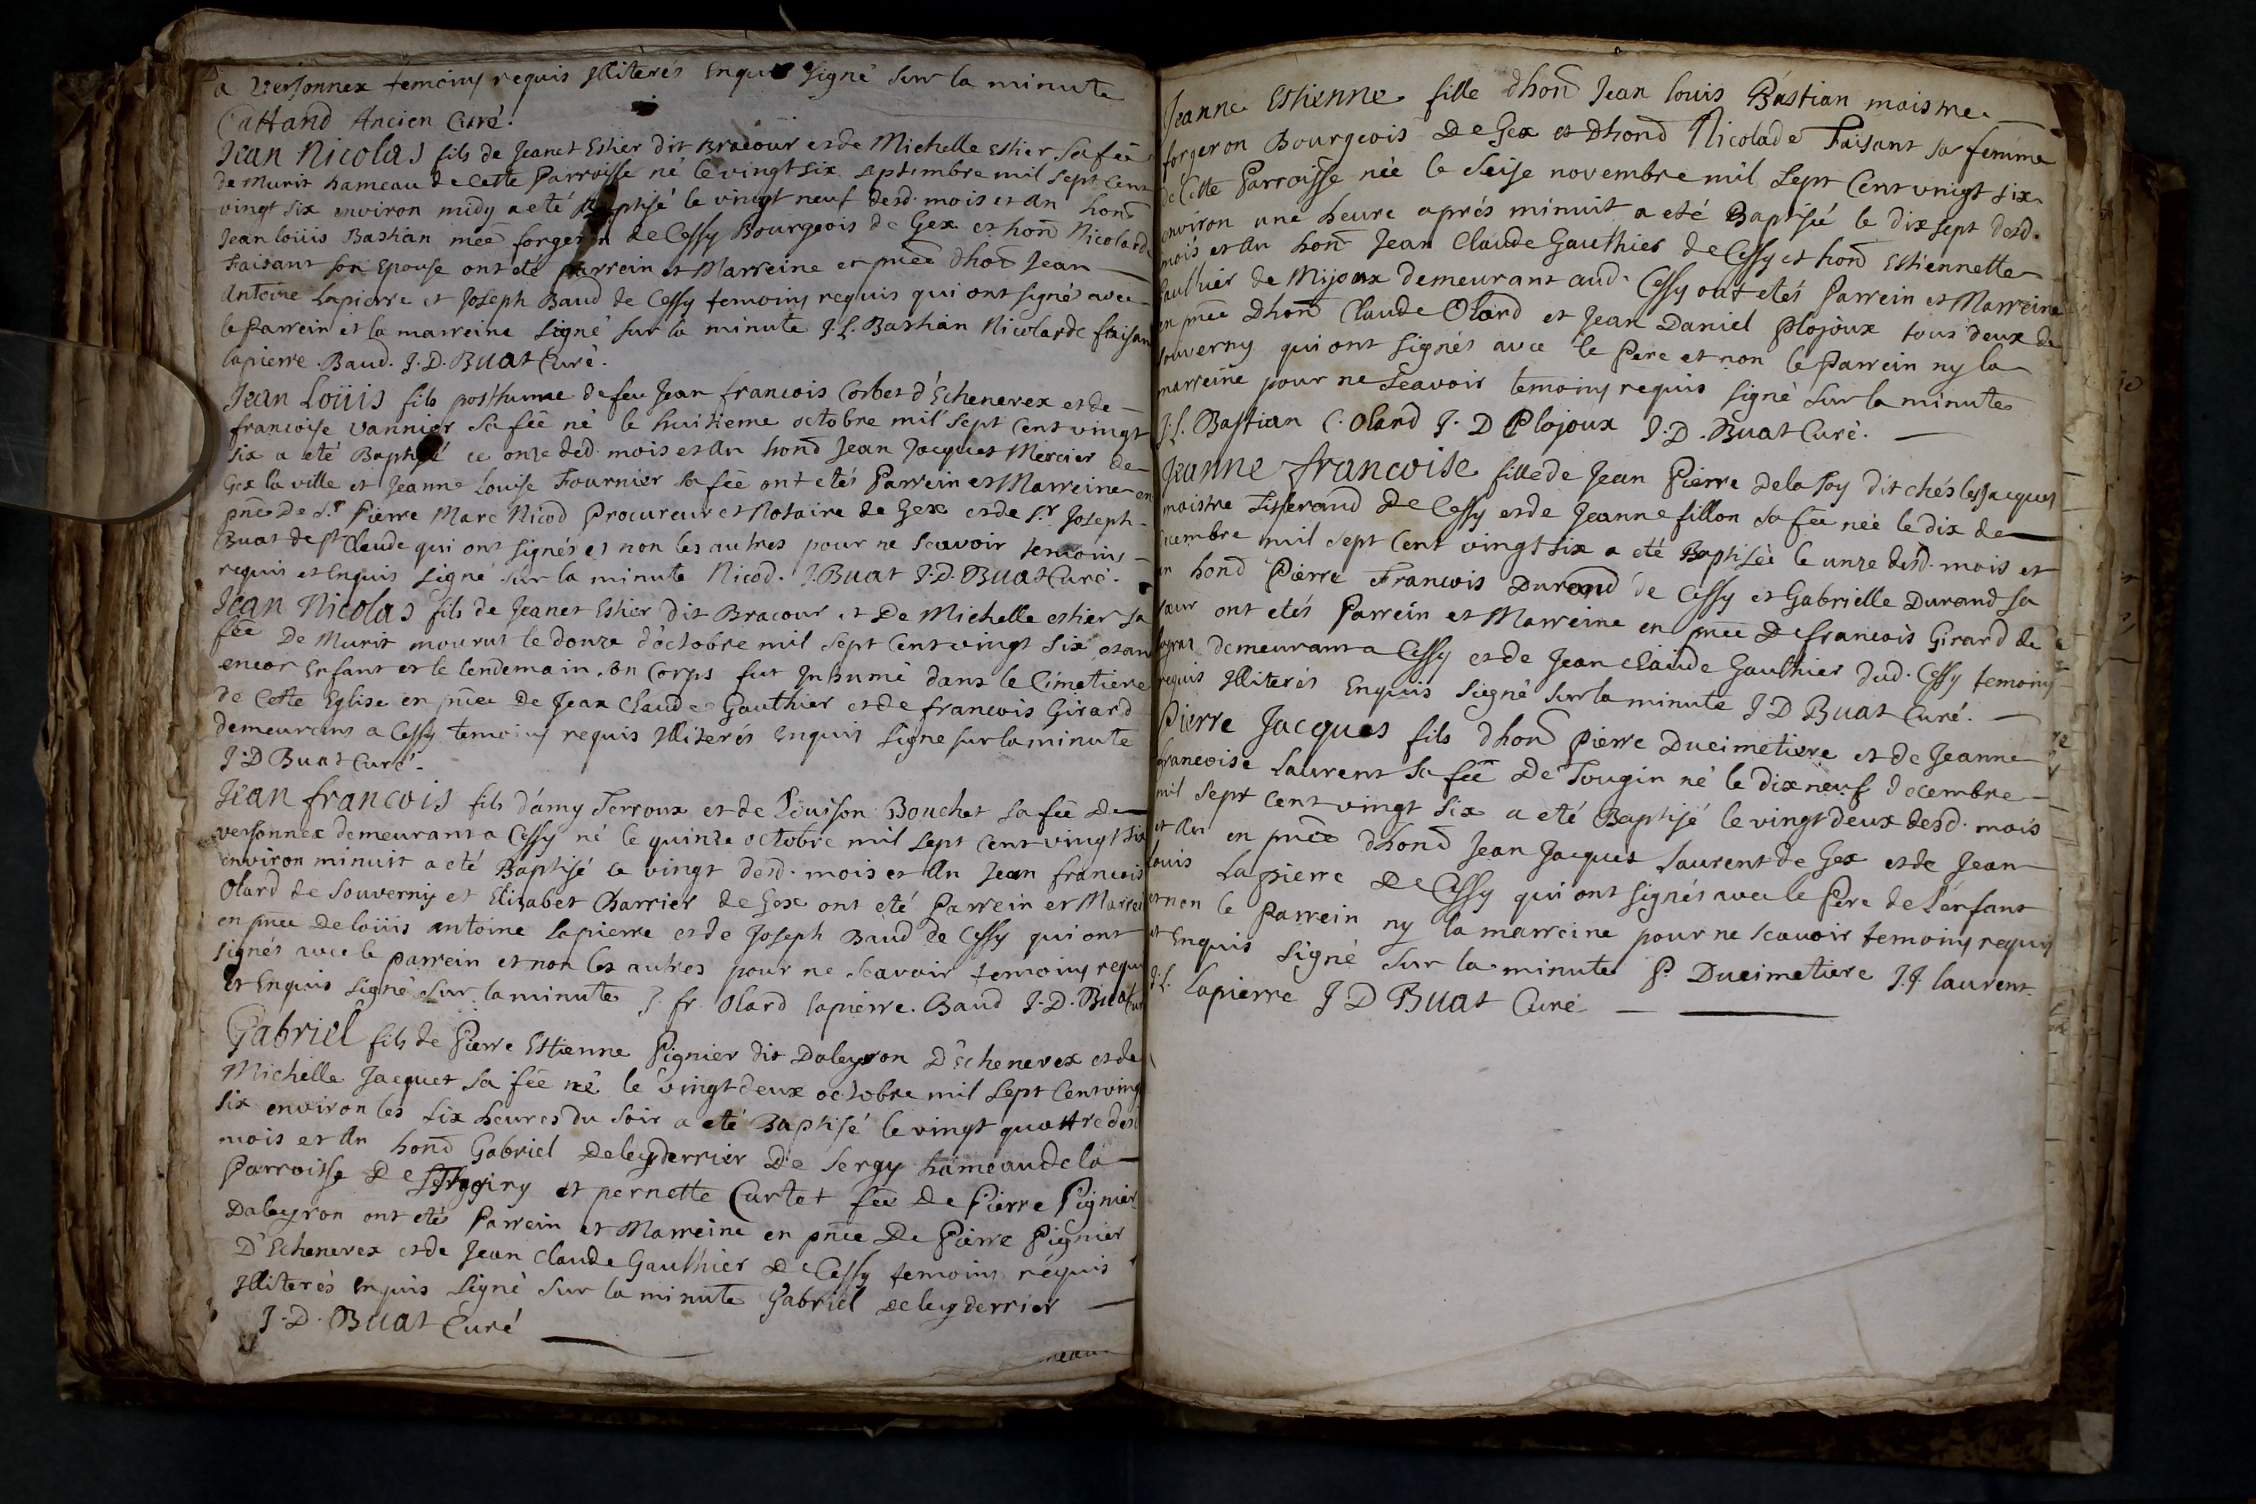 a Versonnex temoins requis Illiterés Enquis Signé Sur la minute
Cattand Ancien Curé.
Jean Nicolas fils de Jeanet Estier dit Bracour et de Michelle Estier Sa fẽe
de Murit hameau de Cette Parroisse né le vingt Six Septembre mil Sept Cent
vingt Six environ midy a eté Baptisé le vingt neuf desd. mois et An honõ
Jean loüis Bastian mẽe forgeron de Cessy Bourgeois de Gex et honõ Nicolarde
Faisant Son Epouse ont eté parrein et Marreine en pñce dhoñ Jean
Antoine Lapierre et Joseph Baud de Cessy temoins requis qui ont signés avec
le Parrein et la marreine Signé Sur la minute J. L. Bastian Nicolarde faisan
lapierre. Baud. J. D. Buat Curé.
Jean Loüis fils posthume de feu Jean francois Corbet d'Echenevex et de
francoise vannier Sa fẽe né le huitieme octobre mil Sept Cent vingt
Six a eté Baptisé ce onze desd. mois et An honõ Jean Jacques Mercier de
Gex la ville et Jeanne Louise Fournier Sa fẽe ont etés Parrein et Marreine en
pñce De S.r Pierre Marc Nicod Procureur et Notaire de Gex et de S.r Joseph
Buat de St Claude qui ont signés et non les autres pour ne Scavoir temoins
requis et Enquis Signé Sur la minute Nicod. J. Buat J. D. Buat Curé.
Jean Nicolas fils de Jeanet Estier dit Bracour et De Michelle estier Sa
fẽe De Murit mourut le Douze d'octobre mil Sept Cent vingt Six etan
encor Enfant et le lendemain Son Corps fut Inhumé dans le Cimetiere
de Cette Eglise en pñce De Jean Claude Gauthier et de francois Girard
demeurans a Cessy temoins requis Illiterés Enquis Signe Sur la minute
J. D Buat Curé.
Jean francois fils d'amy Terroux et de Loüison Bouchet Sa fẽe De
versonnex demeurant a Cessy né le quinze octobre mil Sept Cent vingt Six
environ minuit a eté Baptisé le vingt desd. mois et An Jean francois
Olard de Souverny et Elizabet Charrier de Gex ont eté Parrein et Marrei
en pñce De loüis antoine Lapierre et de Joseph Baud de Cessy qui ont
signés avec le parrein et non les autres pour ne Scavoir temoins requi
et Enquis Signé Sur la minute J. fr. Olard lapierre. Baud J. D. Buat Cur
Gabriel fils de Pierre Estienne Pignier dit Daleyron D'Echenevex et de
Michelle Jacquet Sa fẽe né le vingt deux octobre mil Sept Cent ving
Six environ les Six heures du Soir a eté Baptisé le vingt quattre desd
mois et An honõ Gabriel Deleyderrier De Sergy hameau de la
Parroisse De et pernette Curtet fẽe De Pierre Pignier
Daleyron ont etés Parrein et Marreine en pñce De Pierre Pignier
D'Echenevex et de Jean Claude Gauthier De Cessy temoins requis
Illiterés Enquis Signé Sur la minute Gabriel Deleyderrier
J. D. Buat Curé
Jeanne Estienne fille dhonõ Jean louis Bastian maistre
forgeron Bourgeois De Gex et Dhonõ Nicolade Faisant Sa femme
de Cette Parroisse née le Seise novembre mil Sept Cent vingt Six
environ une heure aprés minuit a eté Baptisé le dix sept desd.
mois et An honõ Jean Claude Gauthier de Cessy et honõ Estiennette
Gauthier de Mijoux demeurant aud. Cessy ont etés Parrein et Marreine
en pñce Dhonõ Claude Olard et Jean Daniel Plojoux tous deux de
Souverny qui ont signés avec le Pere et non le Parrein ny la
marreine pour ne Scavoir temoins requis Signé Sur la minute
J. L. Bastian C. Olard J. D Plojoux J. D. Buat Curé.
Jeanne francoise fille de Jean Pierre Delafoy dit chés les Jacques
maistre Tisserand De Cessy et de Jeanne fillon Sa fẽe née le dix de
cembre mil Sept Cent vingt six a eté Baptisée le unze desd. mois et
an honõ Pierre Francois Durand de Cessy et Gabrielle Durand Sa
Sœur ont etés Parrein et Marreine en pñce De francois Girard de
demeurant a Cessy et de Jean Claude Gauthier dud. Cessy temoins
requis Illiterés Enquis Signé Sur la minute J D Buat Curé.
Pierre Jacques fils dhonõ Pierre Ducimetiere et de Jeanne
francoise Laurent Sa fẽe De Tougin né le dix neuf decembre
mil Sept Cent vingt Six a eté Baptisé le vingt deux desd. mois
et An en pñce dhonõ Jean Jacques Laurent de Gex et de Jean
Louis Lapierre De Cessy qui ont signés avec le Pere de l'enfant
et non le Parrein ny la marreine pour ne Scavoir temoins requis
et Enquis Signé Sur la minute P. Ducimetiere J. J. laurent.
J. L. Lapierre J D Buat Curé